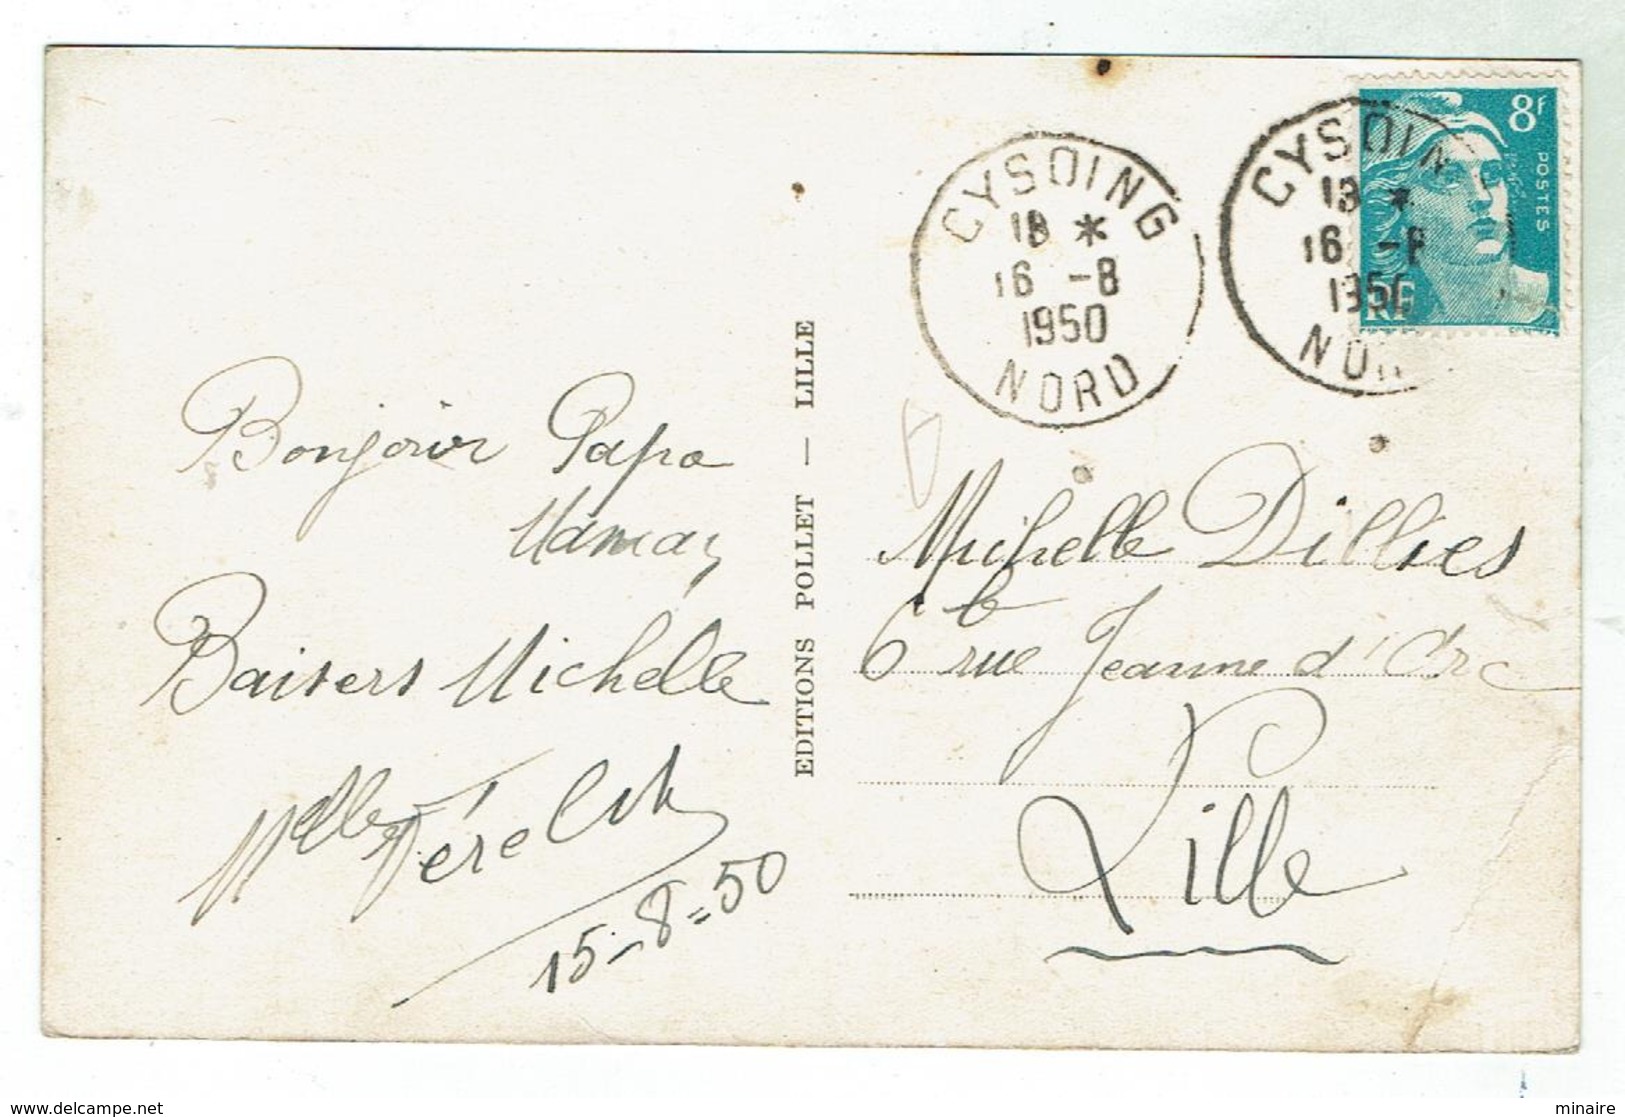 Bonjour Papa
Maman
Baisers Michelle
Melle
15-8=50
EDITIONS POLLET — LILLE
CYSOING
18 *
16 -8
1950
NORD
CYSOIN
18 *
16 -8
1950
NOR
8F
POSTES
RF
Michelle Dillies
6 b rue Jeanne d'Arc
Lille
delcampe.net
minaire